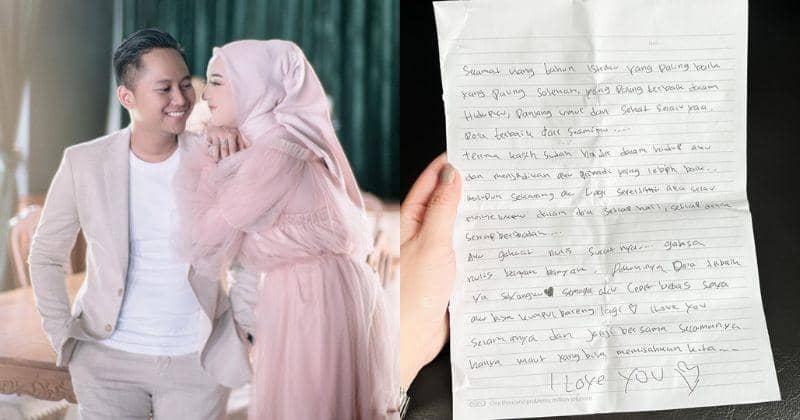 Selamat ulang tahun istriku yang paling baik
yang paling solehah, yang paling berbaik dalam
hidupku, panjang umur dan sehat selalu yaa.
Doa terbaik dari suamimu....
terima kasih sudah hadir dalam hidup aku
dan menjadikan aku pribadi yang lebih baik..
walaupun sekarang aku lagi aku selalu
dalam doa setiap hari, setiap
setiap
Aku gakuat nulis suratnya.... gabisa
nulis banyak banyak. Pokoknya Doa terbaik
ya sayangku semoga aku cepet bebas
aku bisa kumpul bareng lagi I love you
selamanya dan janji bersama selamanya
hanya maut yang bisa memisahkan kita....
I LOVE YOU
One thousand problems, million solutions